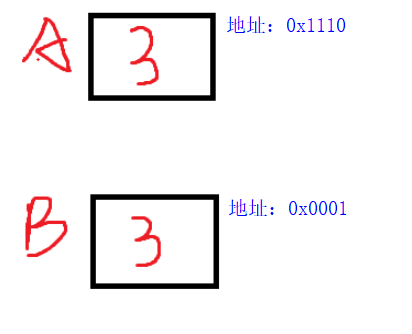 A 3 地址：0x1110
B 3 地址：0x0001